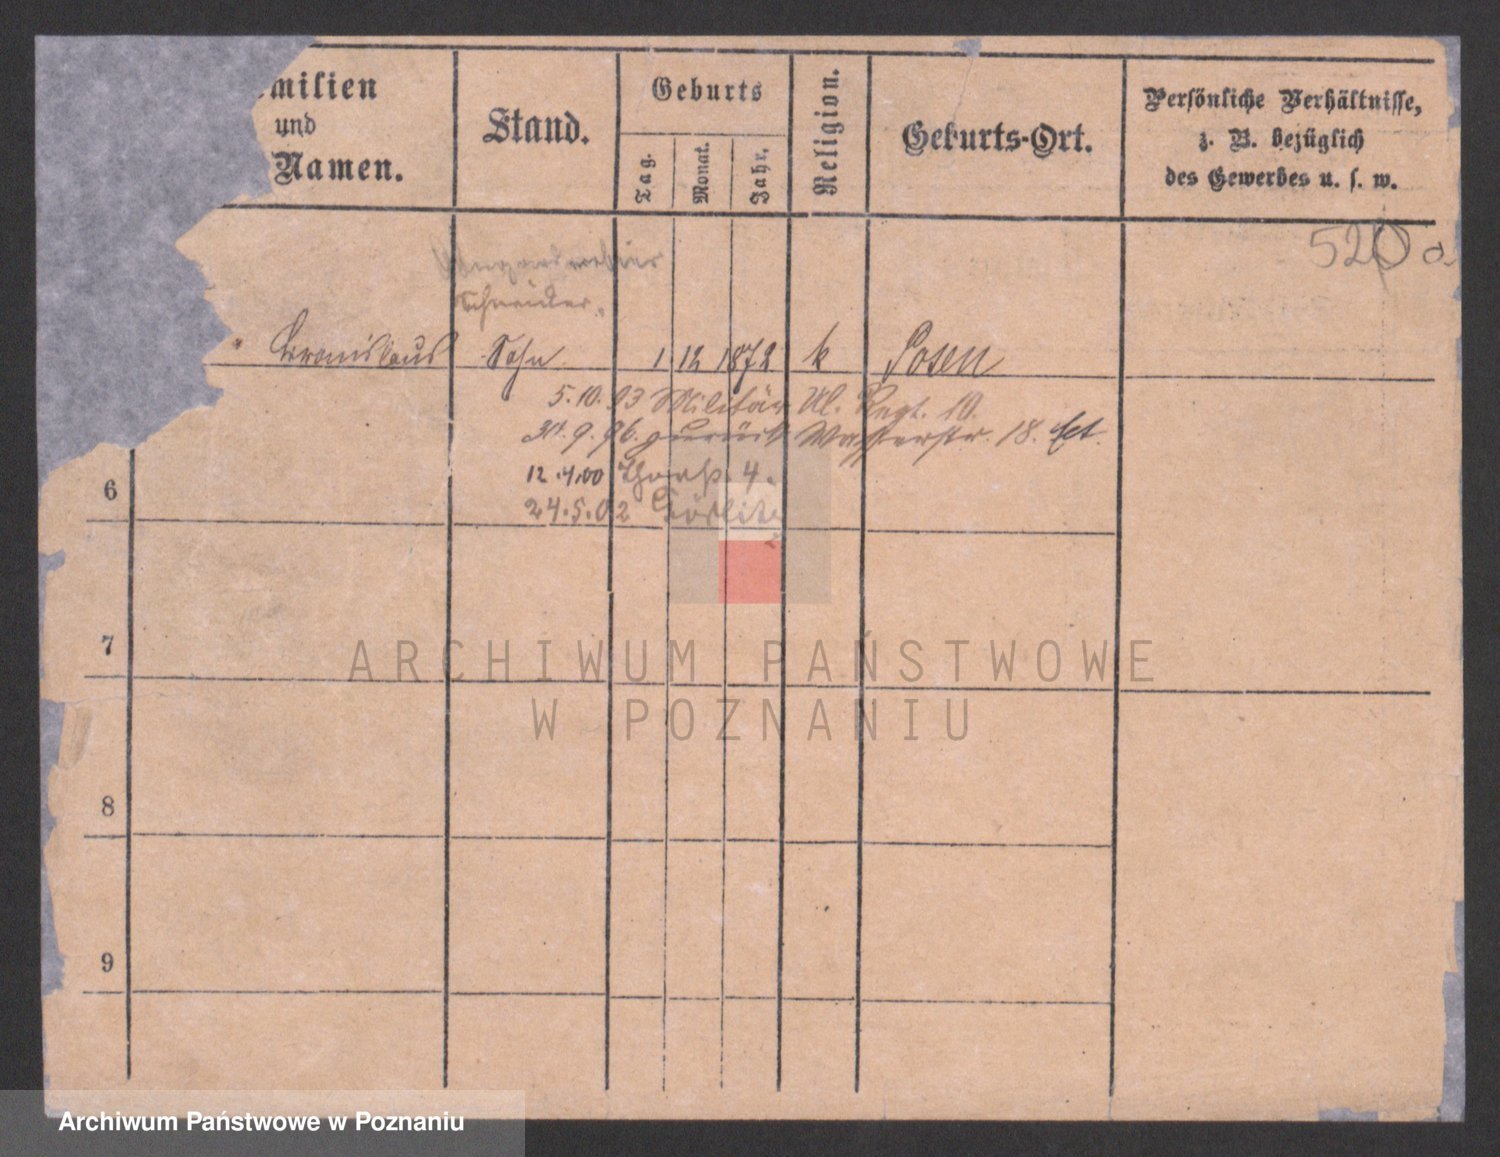 milien
und
Namen.
Stand.
Geburts
Tag.
Monat.
Jahr.
Religion.
Geburts-Ort.
Persönliche Verhältnisse,
z. B. bezüglich
des Gewerbes u. s. w.
520 a.
Schneider.
Bronislaus Sohn 1 12 1872 k Posen
5.10.93 Militär Ul. Regt. 10.
9.96. zurück Wasserstr. 18.
12.4.00 4.
24.5.02 Görlitz
6
7
8
9
ARCHIWUM PAŃSTWOWE
W POZNANIU
Archiwum Państwowe w Poznaniu